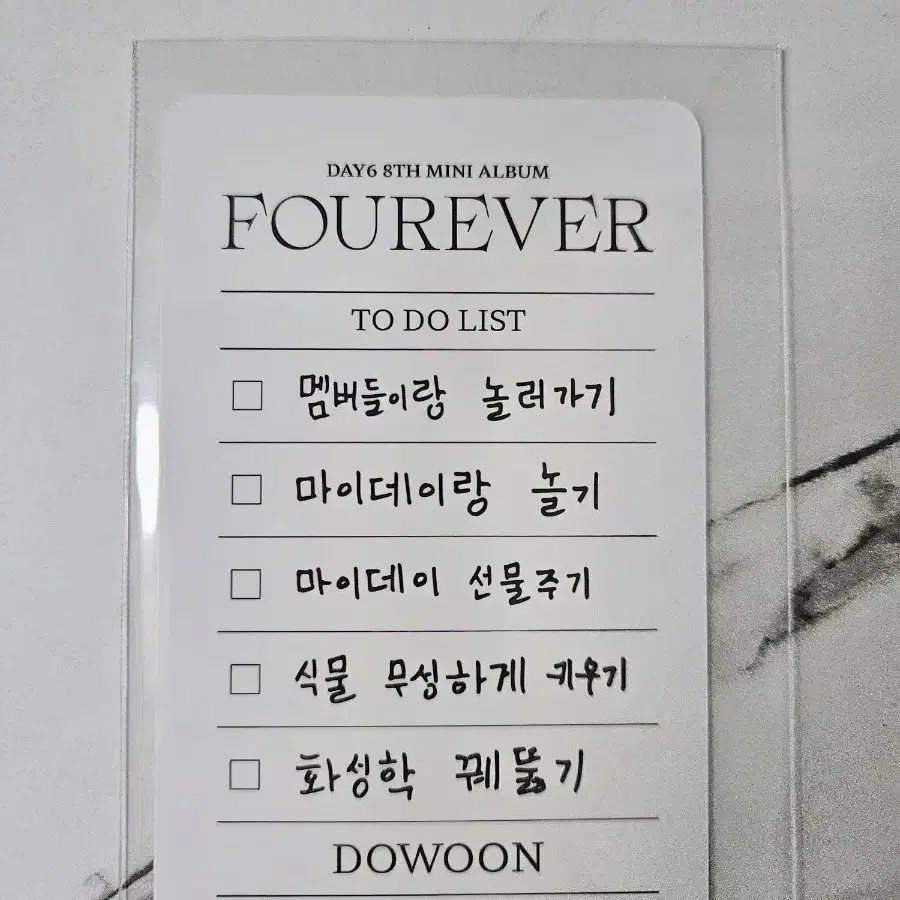 DAY6 8TH MINI ALBUM
FOUREVER
TO DO LIST
멤버들이랑 놀러가기
마이데이랑 놀기
마이데이 선물주기
식물 무성하게 키우기
화성학 꿰뚫기
DOWOON